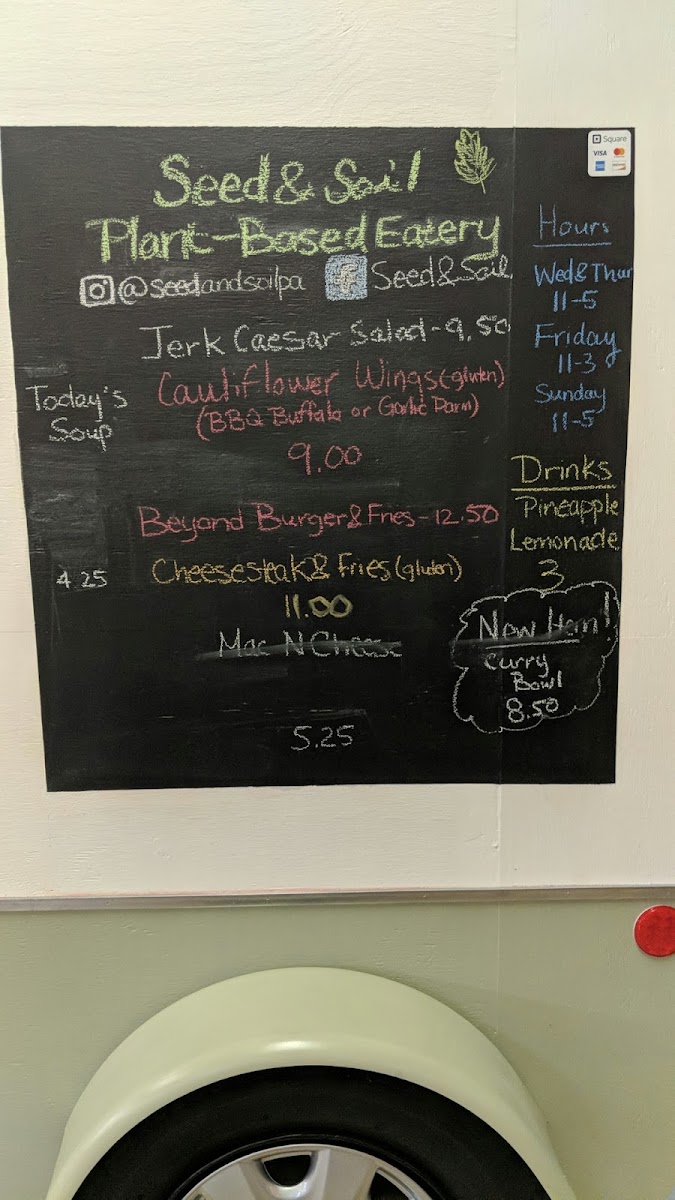 Seed & Soil
Plant-Based Eatery
@seedandsoilpa
f Seed & Soil
Jerk Caesar Salad - 9.50
Cauliflower Wings (gluten)
(BBQ Buffalo or Garlic Parm)
9.00
Beyond Burger & Fries - 12.50
Cheesesteak & Fries (gluten)
11.00
Mac N Cheese
5.25
Today's
Soup
4.25
Square
VISA
Hours
Wed & Thur
11-5
Friday
11-3
Sunday
11-5
Drinks
Pineapple
Lemonade
3
New Item!
Curry
Bowl
8.50